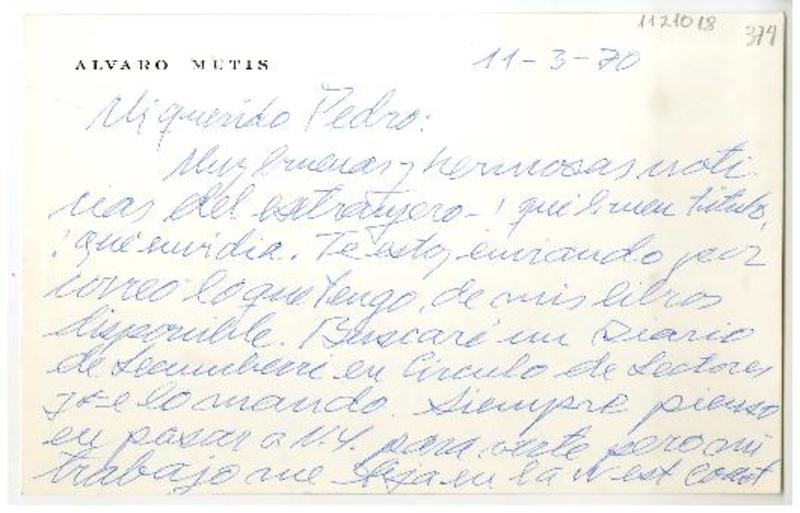 1121018
374
ALVARO MUTIS
11-3-70
Mi querido Pedro:
Muy buenas y hermosas noti-
cias del extranjero - ! qué buen título,
! qué envidia. Te estoy enviando por
correo lo que tengo, de mis libros
disponible. Buscaré un Diario
de Lecumberri en Círculo de Lectores
y te lo mando. Siempre pienso
en pasar a N.Y. para verte pero mi
trabajo me deja en la West Coast